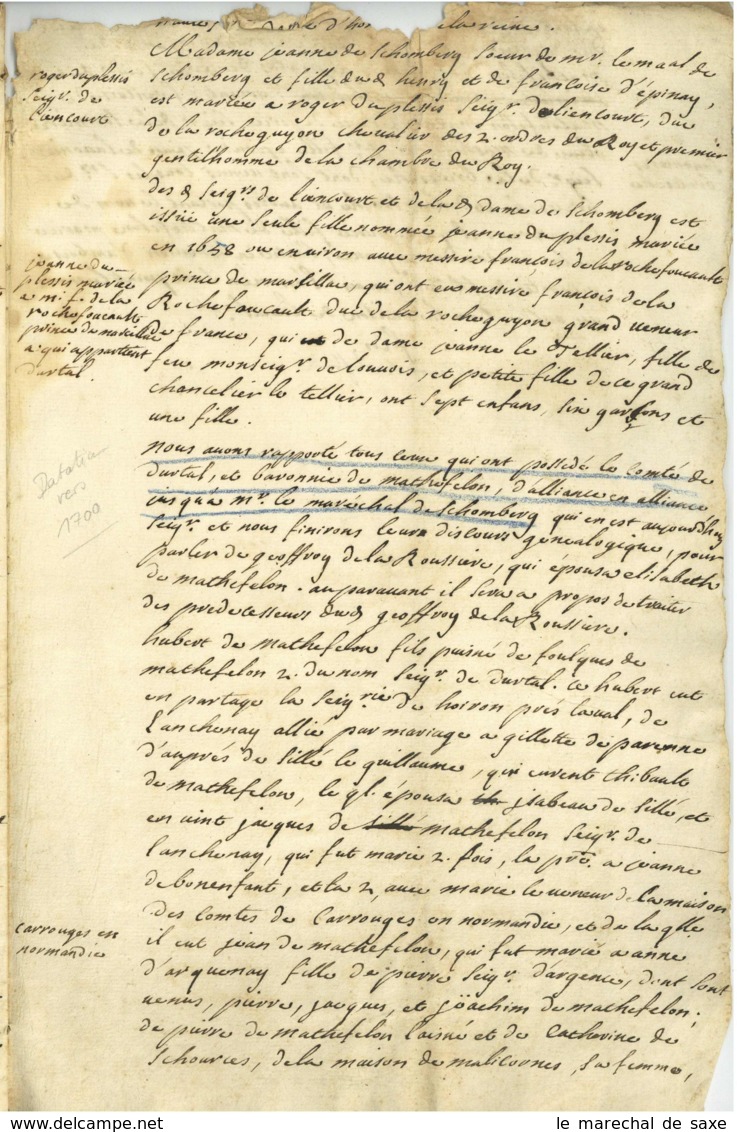 d'hon la reine.
Madame jeanne de Schomberg soeur de mr. le maal de
roger duplessis
Seigr. de
Liencourt
Schomberg et fille dud henry et de francoise d'épinay,
est mariée a roger duplessis Seigr. de liencourt, duc
de la rocheguyon chevalier des 2. ordres du Roy et premier
gentilhomme de la chambre du Roy.
des d Seigrs de Liencourt et de la d dame de Schomberg est
issüe une seule fille nommée jeanne duplessis mariée
en 1658 ou environ avec messire françois de la rochefoucault
jeanne du
plessis mariée
a mr. f. de la
rochefoucault
prince de marcillac
a qui appartient
durtal.
prince de marsillac, qui ont eu messire françois de la
Rochefoucault duc de la rocheguyon grand veneur
de france, qui et de dame jeanne le Tellier, fille de
feu monseigr. de louvois, et petite fille de ce grand
chancelier le tellier, ont sept enfans, six garçons et
une fille.
Datation
vers
1700
nous avons rapporté tous ceux qui ont possedé le comté de
durtal, et baronnie de mathefelon, d'alliance en alliance
jusqu'a mr. le maréchal de Schomberg qui en est aujourd'huy
Seigr. et nous finirons leur discours genealogique, pour
parler de geoffroy de la Roussiere, qui épousa elisabeth
de mathefelon. auparavant il sera a propos de traiter
des predecesseurs dud geoffroy de la Roussiere.
hubert de Mathefelon fils puisné de foulques de
mathefelon 2. du nom Seigr. de durtal. ce hubert eut
en partage la Seigrie de hoiron prés laval, de
Lanchenay allié par mariage a gillette de parenne
d'auprés de Sillé le guillaume, qui eurent thibault
de Mathefelon, le ql. épousa jsabeau de Sillé, et
en vint jacques de Sillé mathefelon Seigr. de
Lanchenay, qui fut marié 2. fois, la pre. a jeanne
de bonenfant, et la 2. avec marie le veneur de la maison
Carrouges en
normandie
des comtes de Carrouges en normandie, et de la qlle
il eut jean de mathefelon, qui fut marié a anne
d'arquenay fille de pierre Seigr. d'argence, dont sont
venus, pierre, jacques, et joachim de mathefelon.
de pierre de mathefelon l'aisné et de Catherine de
Schources, de la maison de malicornes, sa femme,
le marechal de saxe